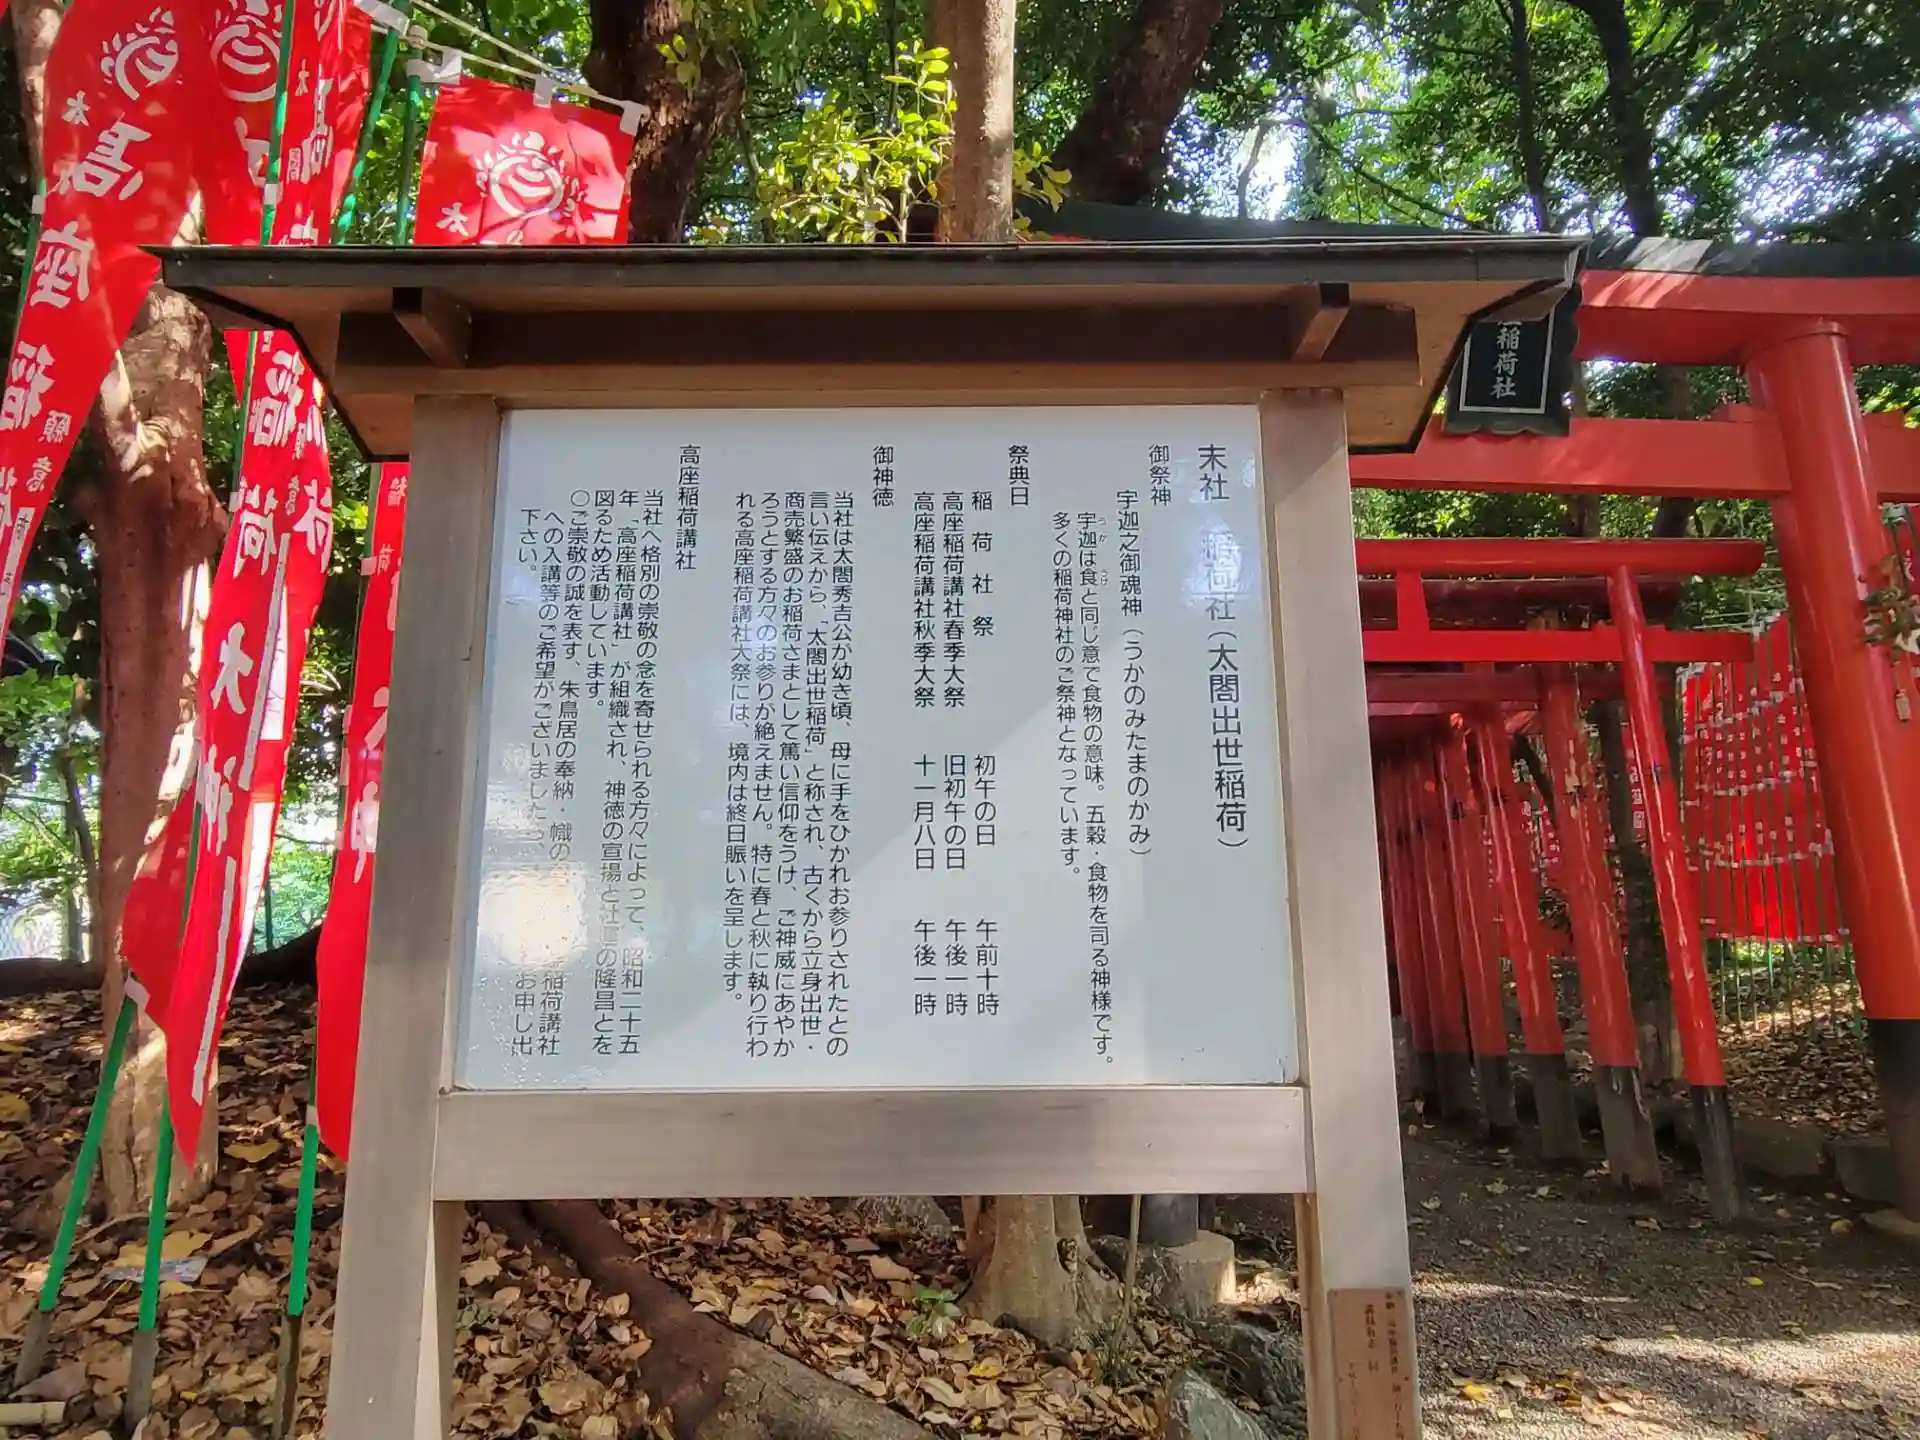 末社 稲荷社（太閤出世稲荷）
御祭神
宇迦之御魂神（うかのみたまのかみ）
宇迦は食と同じ意で食物の意味。五穀・食物を司る神様です。
うか うけ
多くの稲荷神社のご祭神となっています。
祭典日
稲荷社祭 初午の日 午前十時
高座稲荷講社春季大祭 旧初午の日 午後一時
高座稲荷講社秋季大祭 十一月八日 午後一時
御神徳
当社は太閤秀吉公が幼き頃、母に手をひかれお参りされたとの
言い伝えから、「太閤出世稲荷」と称され、古くから立身出世・
商売繁盛のお稲荷さまとして篤い信仰をうけ、ご神威にあやか
ろうとする方々のお参りが絶えません。特に春と秋に執り行わ
れる高座稲荷講社大祭には、境内は終日賑いを呈します。
高座稲荷講社
当社へ格別の崇敬の念を寄せられる方々によって、昭和二十五
年「高座稲荷講社」が組織され、神徳の宣揚と社運の隆昌とを
図るため活動しています。
○ご崇敬の誠を表す、朱鳥居の奉納・幟の 稲荷講社
への入講等のご希望がございましたら、 お申し出
下さい。
稲荷社
高座稲荷大神
願意